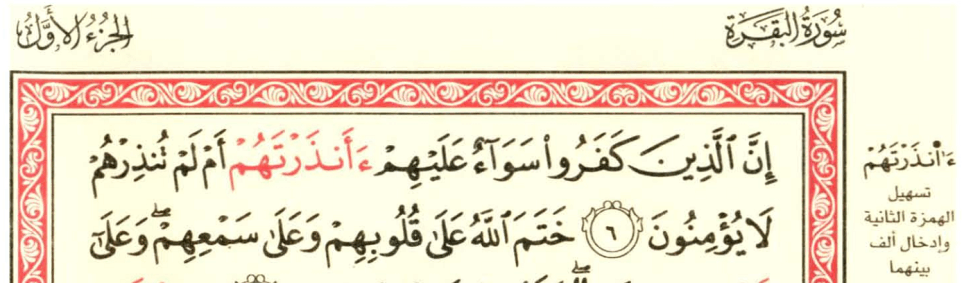 سُورَةُ البَقَرَةِ
الجُزْءُ الأَوَّلُ
إِنَّ ٱلَّذِينَ كَفَرُواْ سَوَآءٌ عَلَيْهِمْ ءَأَنذَرْتَهُمْ أَمْ لَمْ تُنذِرْهُمْ
لَا يُؤْمِنُونَ ٦ خَتَمَ ٱللَّهُ عَلَىٰ قُلُوبِهِمْ وَعَلَىٰ سَمْعِهِمْۖ وَعَلَىٰٓ
ءَا۬نذَرْتَهُمْ
تسهيل
الهمزة الثانية
وإدخال ألف
بينهما